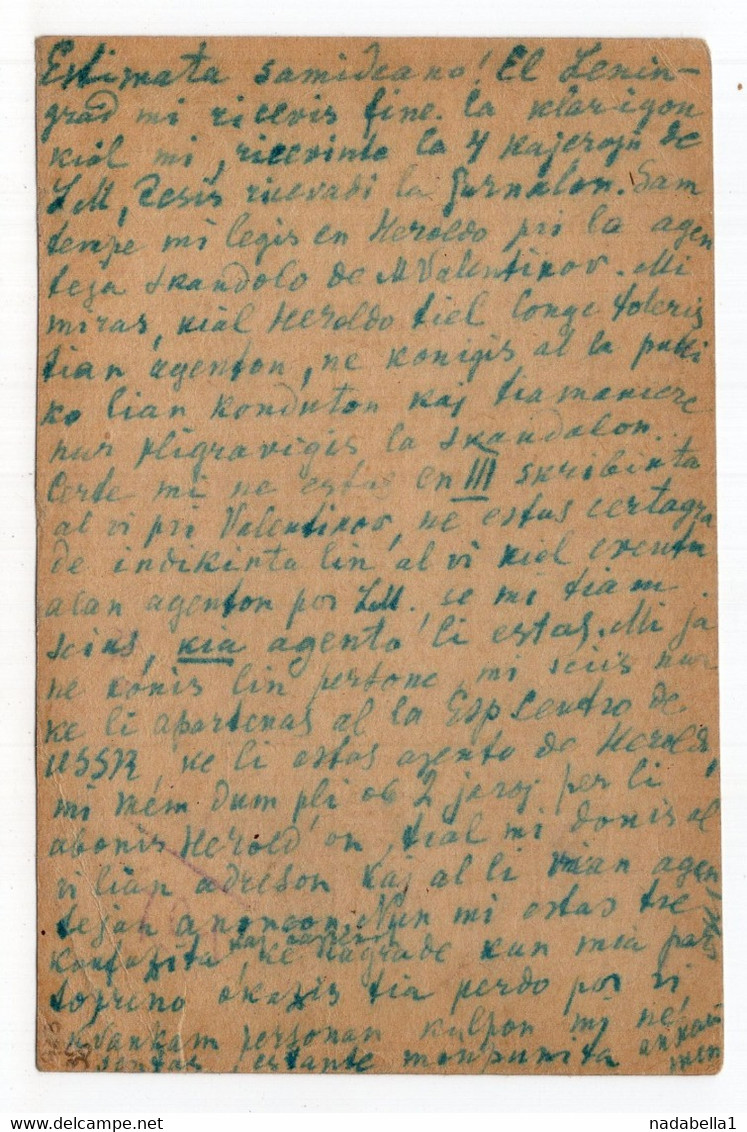 Estimata samideano! El Lenin-
grad mi ricevis fine. la klarigon
kial mi, ricevinte la 4 kajerojn de
L.M, cesis ricevadi la Jurnalon. Sam
tempe mi legis en Heroldo pri la agen
teja skandalo de Valentinov. Mi
miras, kial Heroldo tiel longe toleris
tian agenton, ne konigis al la publi
ko lian konduton kaj tiamaniere
nur pligravigis la skandalon.
Certe mi ne estas en III skribinta
al vi pri Valentinov, ne estus certagra
de indikinta lin al vi kiel eventu
alan agenton por L.M. se mi tiam
scius, kia agento li estas. Mi ja
ne konis lin persone, mi sciis nur
ke li apartenas al la Esp Centro de
USSR, ke li estas agento de Heroldo,
mi mem dum pli ol 2 jaroj per li
abonis Herold'on, tial mi donis al
vi lian adreson kaj al li vian agen
tejan anoncon. Nun mi estas tre
konfuzita, kaj ke
okazis tia perdo por vi
kvankam personan kulpon mi ne
sentas, estante
nadabella1